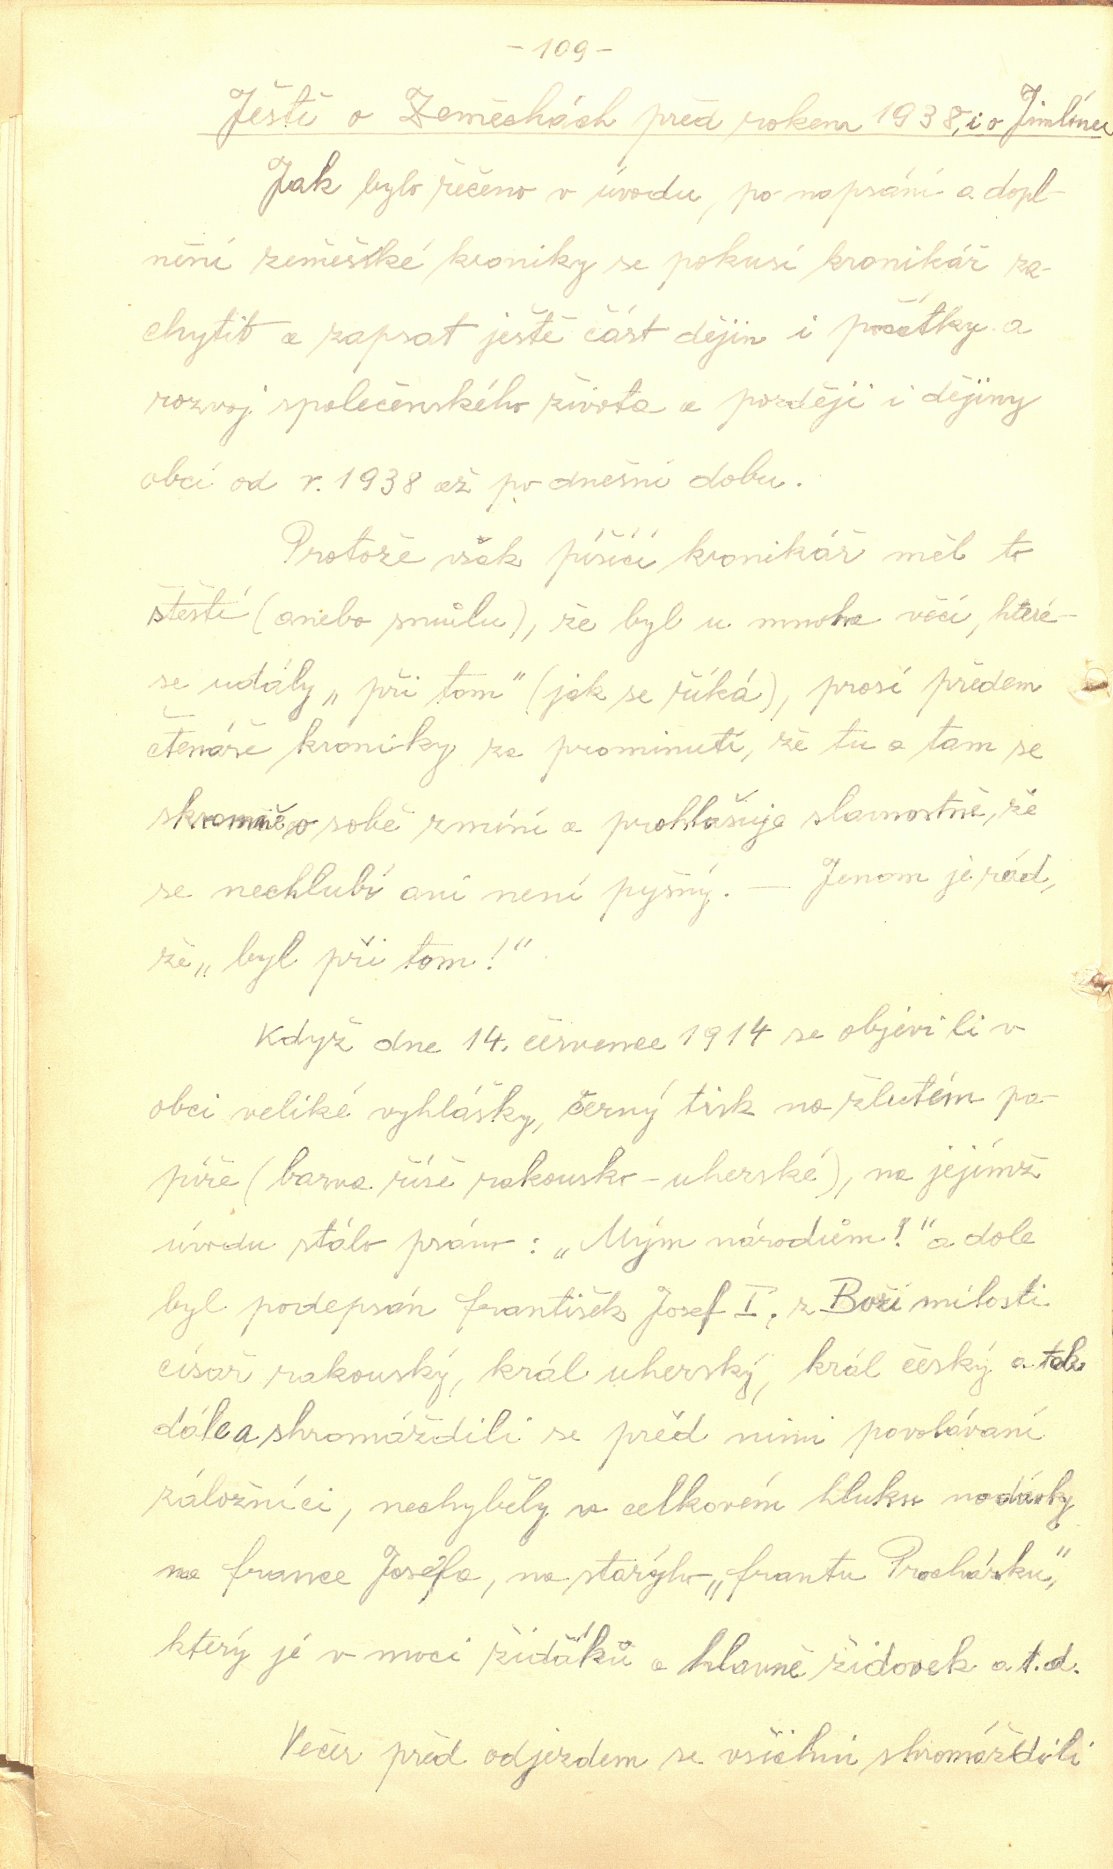 - 109 -
Ještě o Zeměchách před rokem 1938, i o Jimlínu
Jak bylo řečeno v úvodu, po napsání a dopl-
nění zeměšské kroniky se pokusí kronikář za-
chytit a zapsat ještě část dějin i počátky a
rozvoj společenského života a později i dějiny
obcí od r. 1938 až po dnešní dobu.
Protože však píšící kronikář měl to
štěstí (anebo smůlu), že byl u mnoha věcí, které
se udály „při tom" (jak se říká), prosí předem
čtenáře kroniky za prominutí, že tu a tam se
skromně o sobě zmíní a prohlašuje slavnostně, že
se nechlubí ani není pyšný. — Jenom je rád,
že „byl při tom!"
Když dne 14. července 1914 se objevili v
obci veliké vyhlášky, černý tisk na žlutém pa-
píře (barva říše rakousko-uherské), na jejímž
úvodu stálo psáno: „Mým národům!" a dole
byl podepsán František Josef I, z Boží milosti
císař rakouský, král uherský, král český a tak
dále a shromáždili se před nimi povolávaní
záložníci, nechyběly v celkovém hluku nadávky
na France Josefa, na starýho „Frantu Procházku",
který je v moci židáků a hlavně židovek a t.d.
Večer před odjezdem se všichni shromáždili